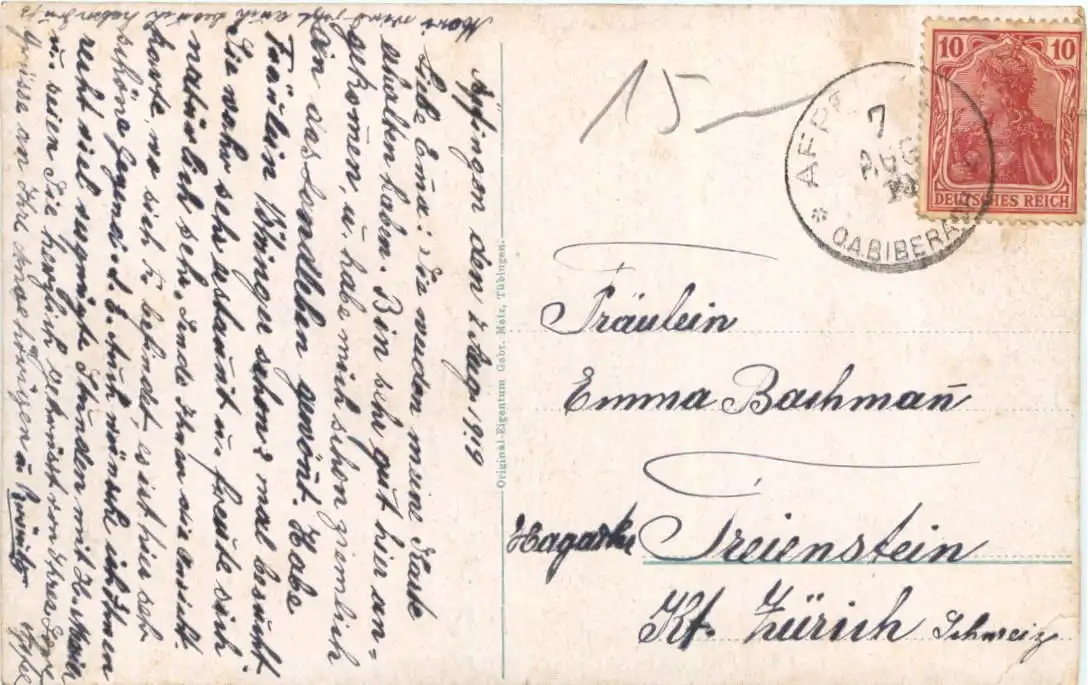 Äpfingen den 7 Aug. 1919
Liebe Emma! Sie werden meine Karte
erhalten haben. Bin sehr gut hier an-
gekomen, u. habe mich schon ziemlich
an das Landleben gewönt. Habe
Fräulein Böhinger schon 2 mal besucht
Sie wahr sehr erstaunt u. freute sich
natürlich sehr, sende Ihnen die Ansicht-
karte, wo sich befindet, es ist hier seh
schöne Gegend. Auch wünsche ich Ihnen
recht viel vergnügte Stunden mit
u. seien Sie herzlich gegrüsst von Ihrer
Grüsse an Ihre Angehörigen u.
Original-Eigentum Gebr. Metz, Tübingen.
15
10 10
DEUTSCHES REICH
7
AUG
19
* O.A.BIBERACH
Fräulein
Emma Bachmann̄
Freienstein
Kt. Zürich Schweiz